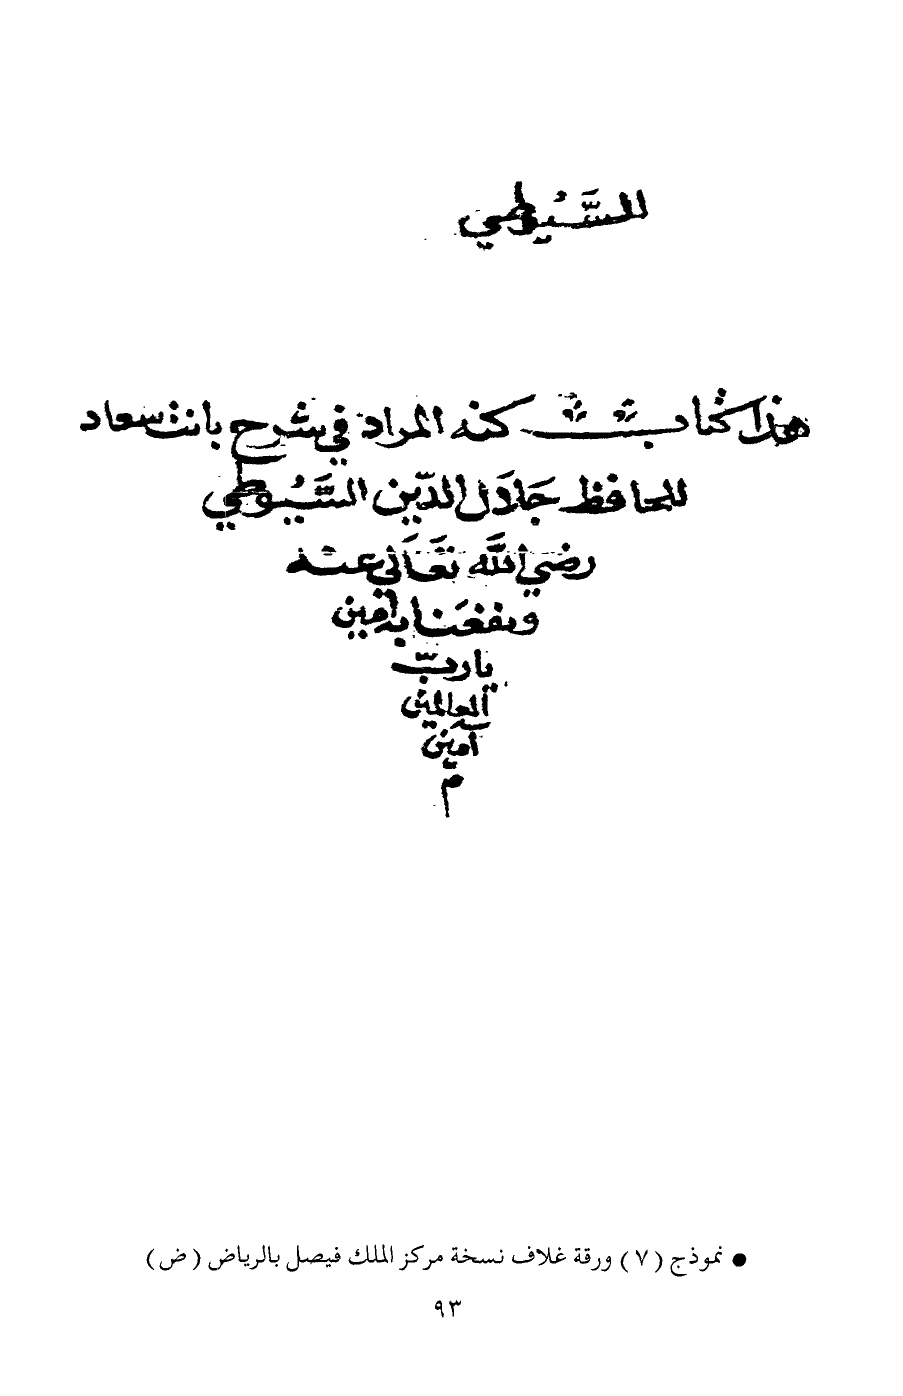 للسَّيُوطي
هذا كتاب كنه المراد في شرح بانت سعاد
للحافظ جَلال الدّين السَّيُوطي
رضي اللَّه تَعَالَي عنه
ونفعَنا به آمين
يا ربّ
العالمين
آمين
م
• نموذج ( ٧ ) ورقة غلاف نسخة مركز الملك فيصل بالرياض ( ض )
٩٣